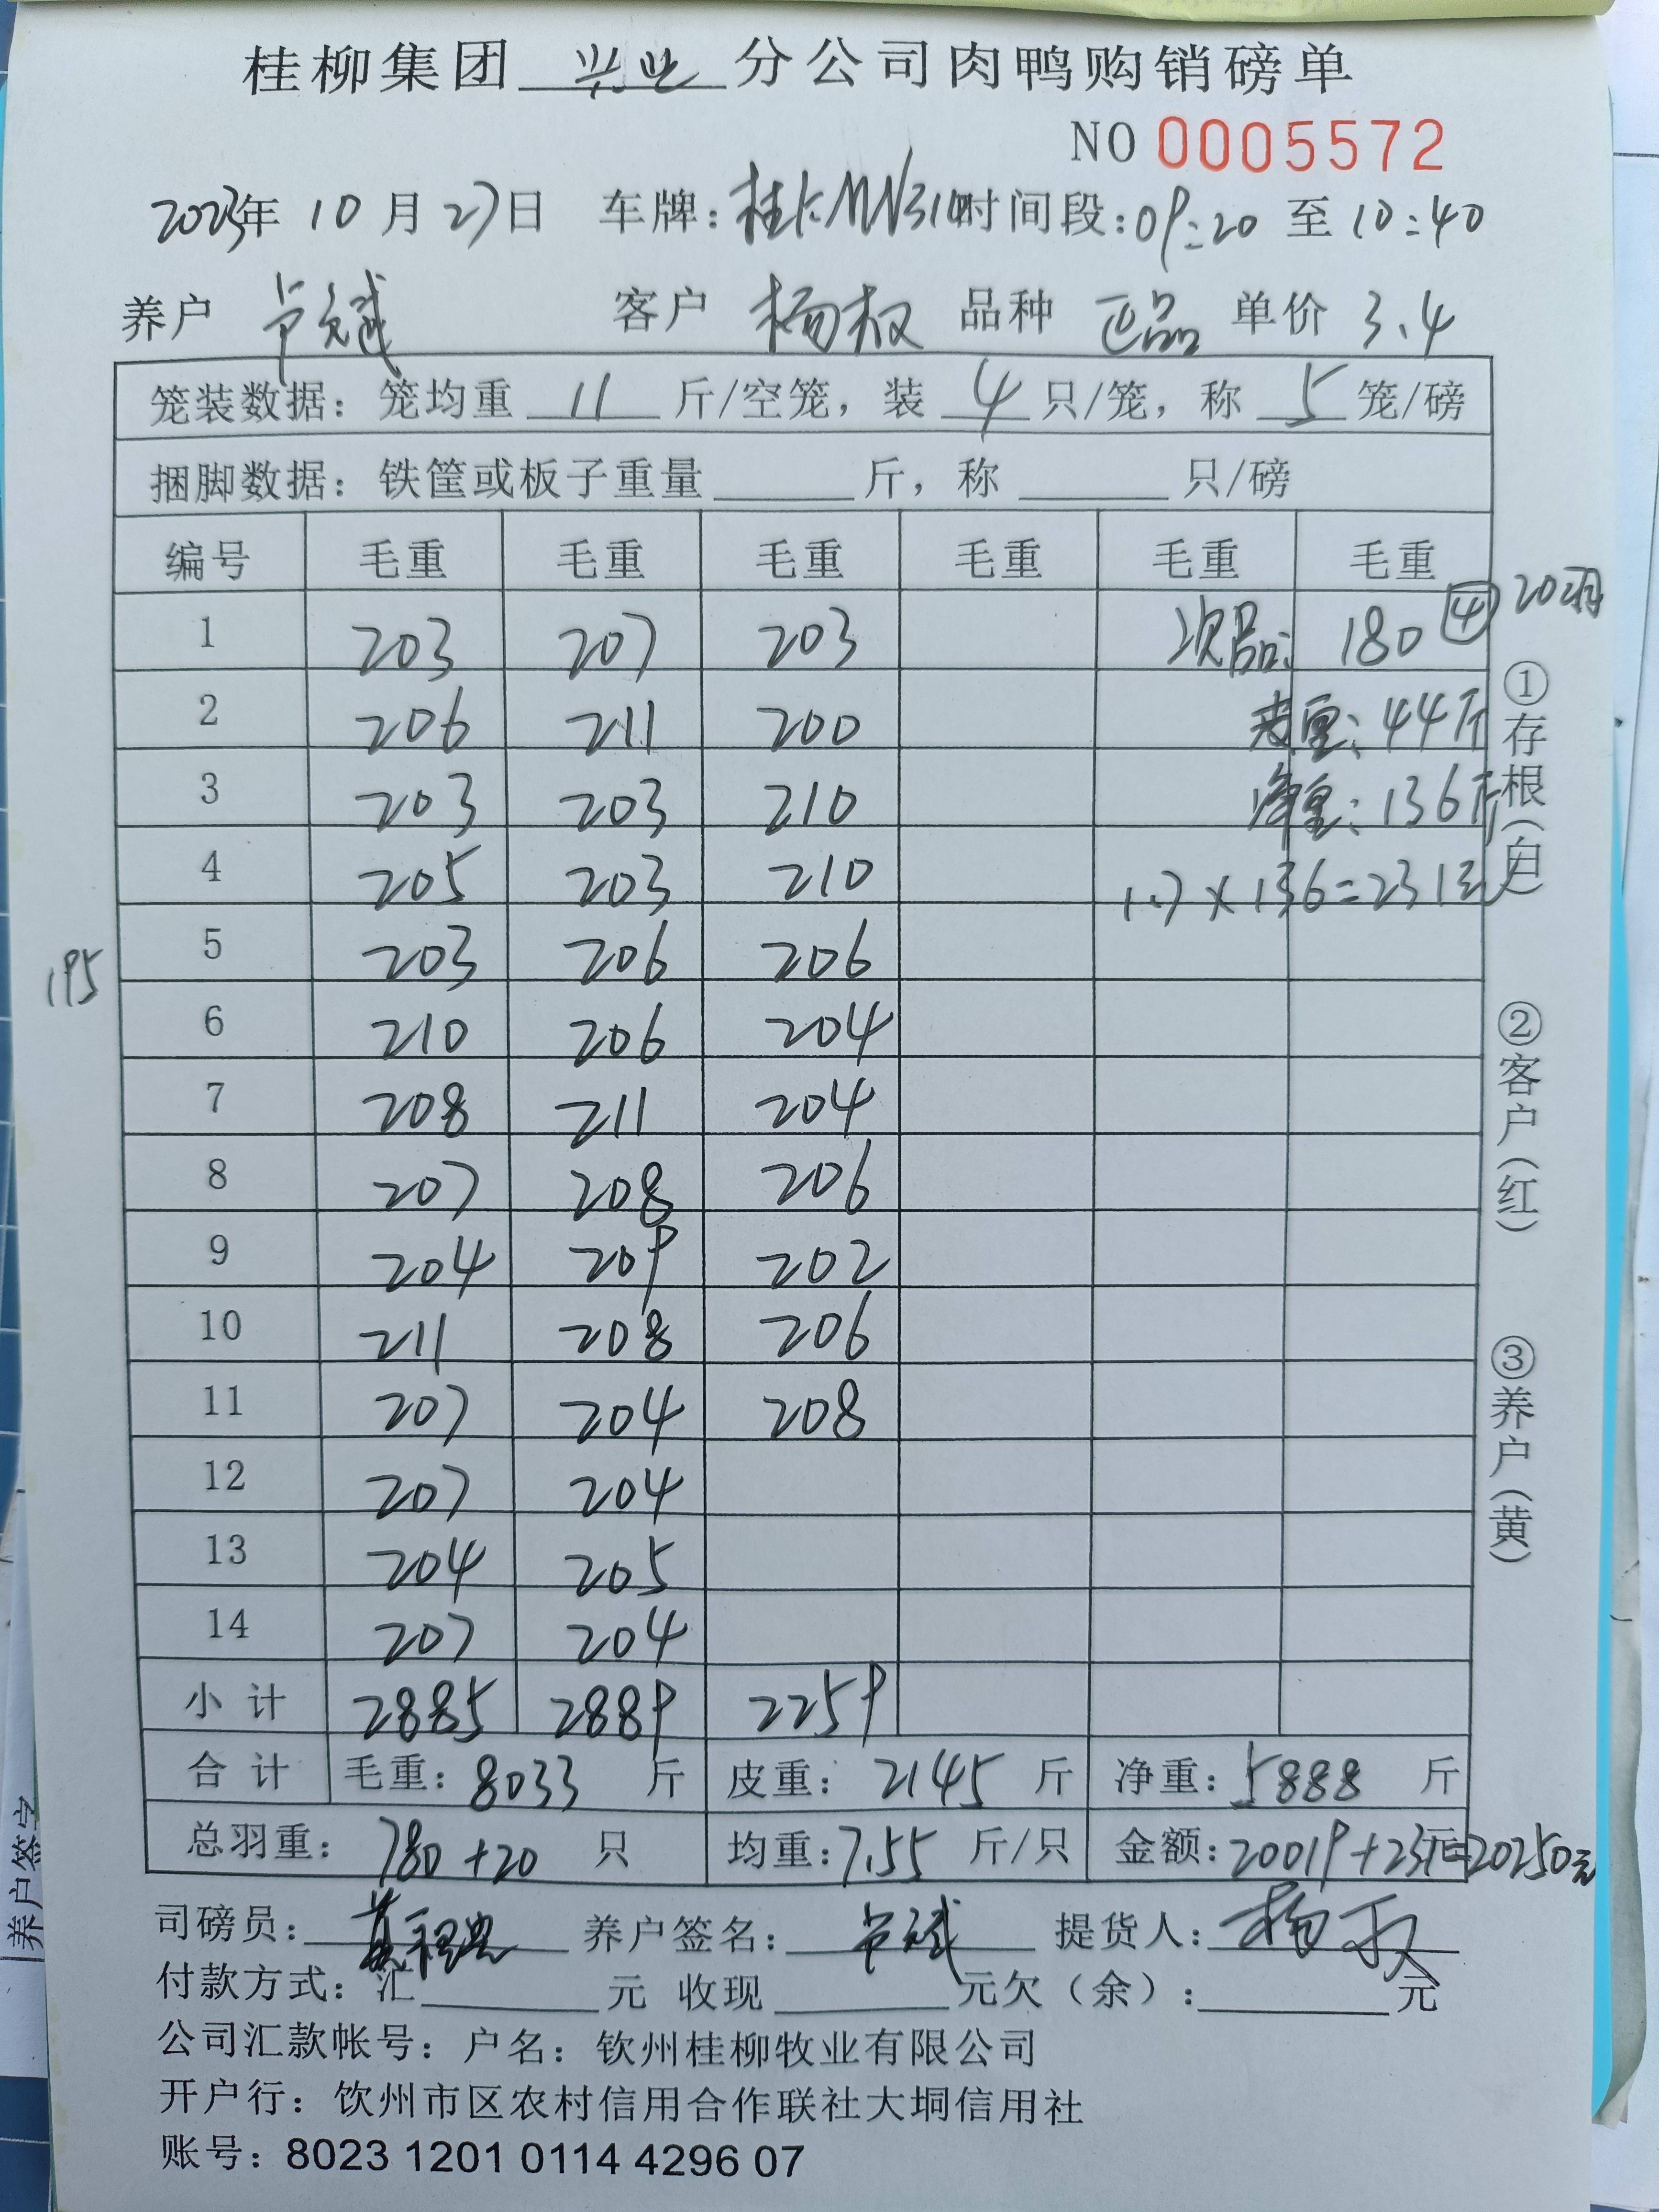 桂柳集团 兴业 分公司肉鸭购销磅单
NO 0005572
2023年 10月27日 车牌: 时间段:09:20 至 10:40
养户 卢斌 客户 杨权 品种 正品 单价 3.4
笼装数据：笼均重 11 斤/空笼，装 4 只/笼，称 5 笼/磅
捆脚数据：铁筐或板子重量 斤，称 只/磅
编号 毛重 毛重 毛重 毛重 毛重 毛重
1 203 207 203 次品: 180 ④ 20只
2 206 211 200 皮重: 44斤
3 203 203 210 净重: 136斤
4 205 203 210 1.7×136=231元
5 203 206 206
195
6 210 206 204
7 208 211 204
8 207 208 206
9 204 209 202
10 211 208 206
11 207 204 208
12 207 204
13 204 205
14 207 204
小计 2885 2889 2259
合计 毛重: 8033 斤 皮重: 2145 斤 净重: 5888 斤
总羽重: 780+20 只 均重: 7.55 斤/只 金额: 20019+231元=20250元
司磅员: 养户签名: 卢斌 提货人: 杨权
付款方式: 汇 元 收现 元欠（余）: 元
公司汇款帐号：户名：钦州桂柳牧业有限公司
开户行：饮州市区农村信用合作联社大垌信用社
账号：8023 1201 0114 4296 07
①存根（白）
②客户（红）
③养户（黄）
养户签字